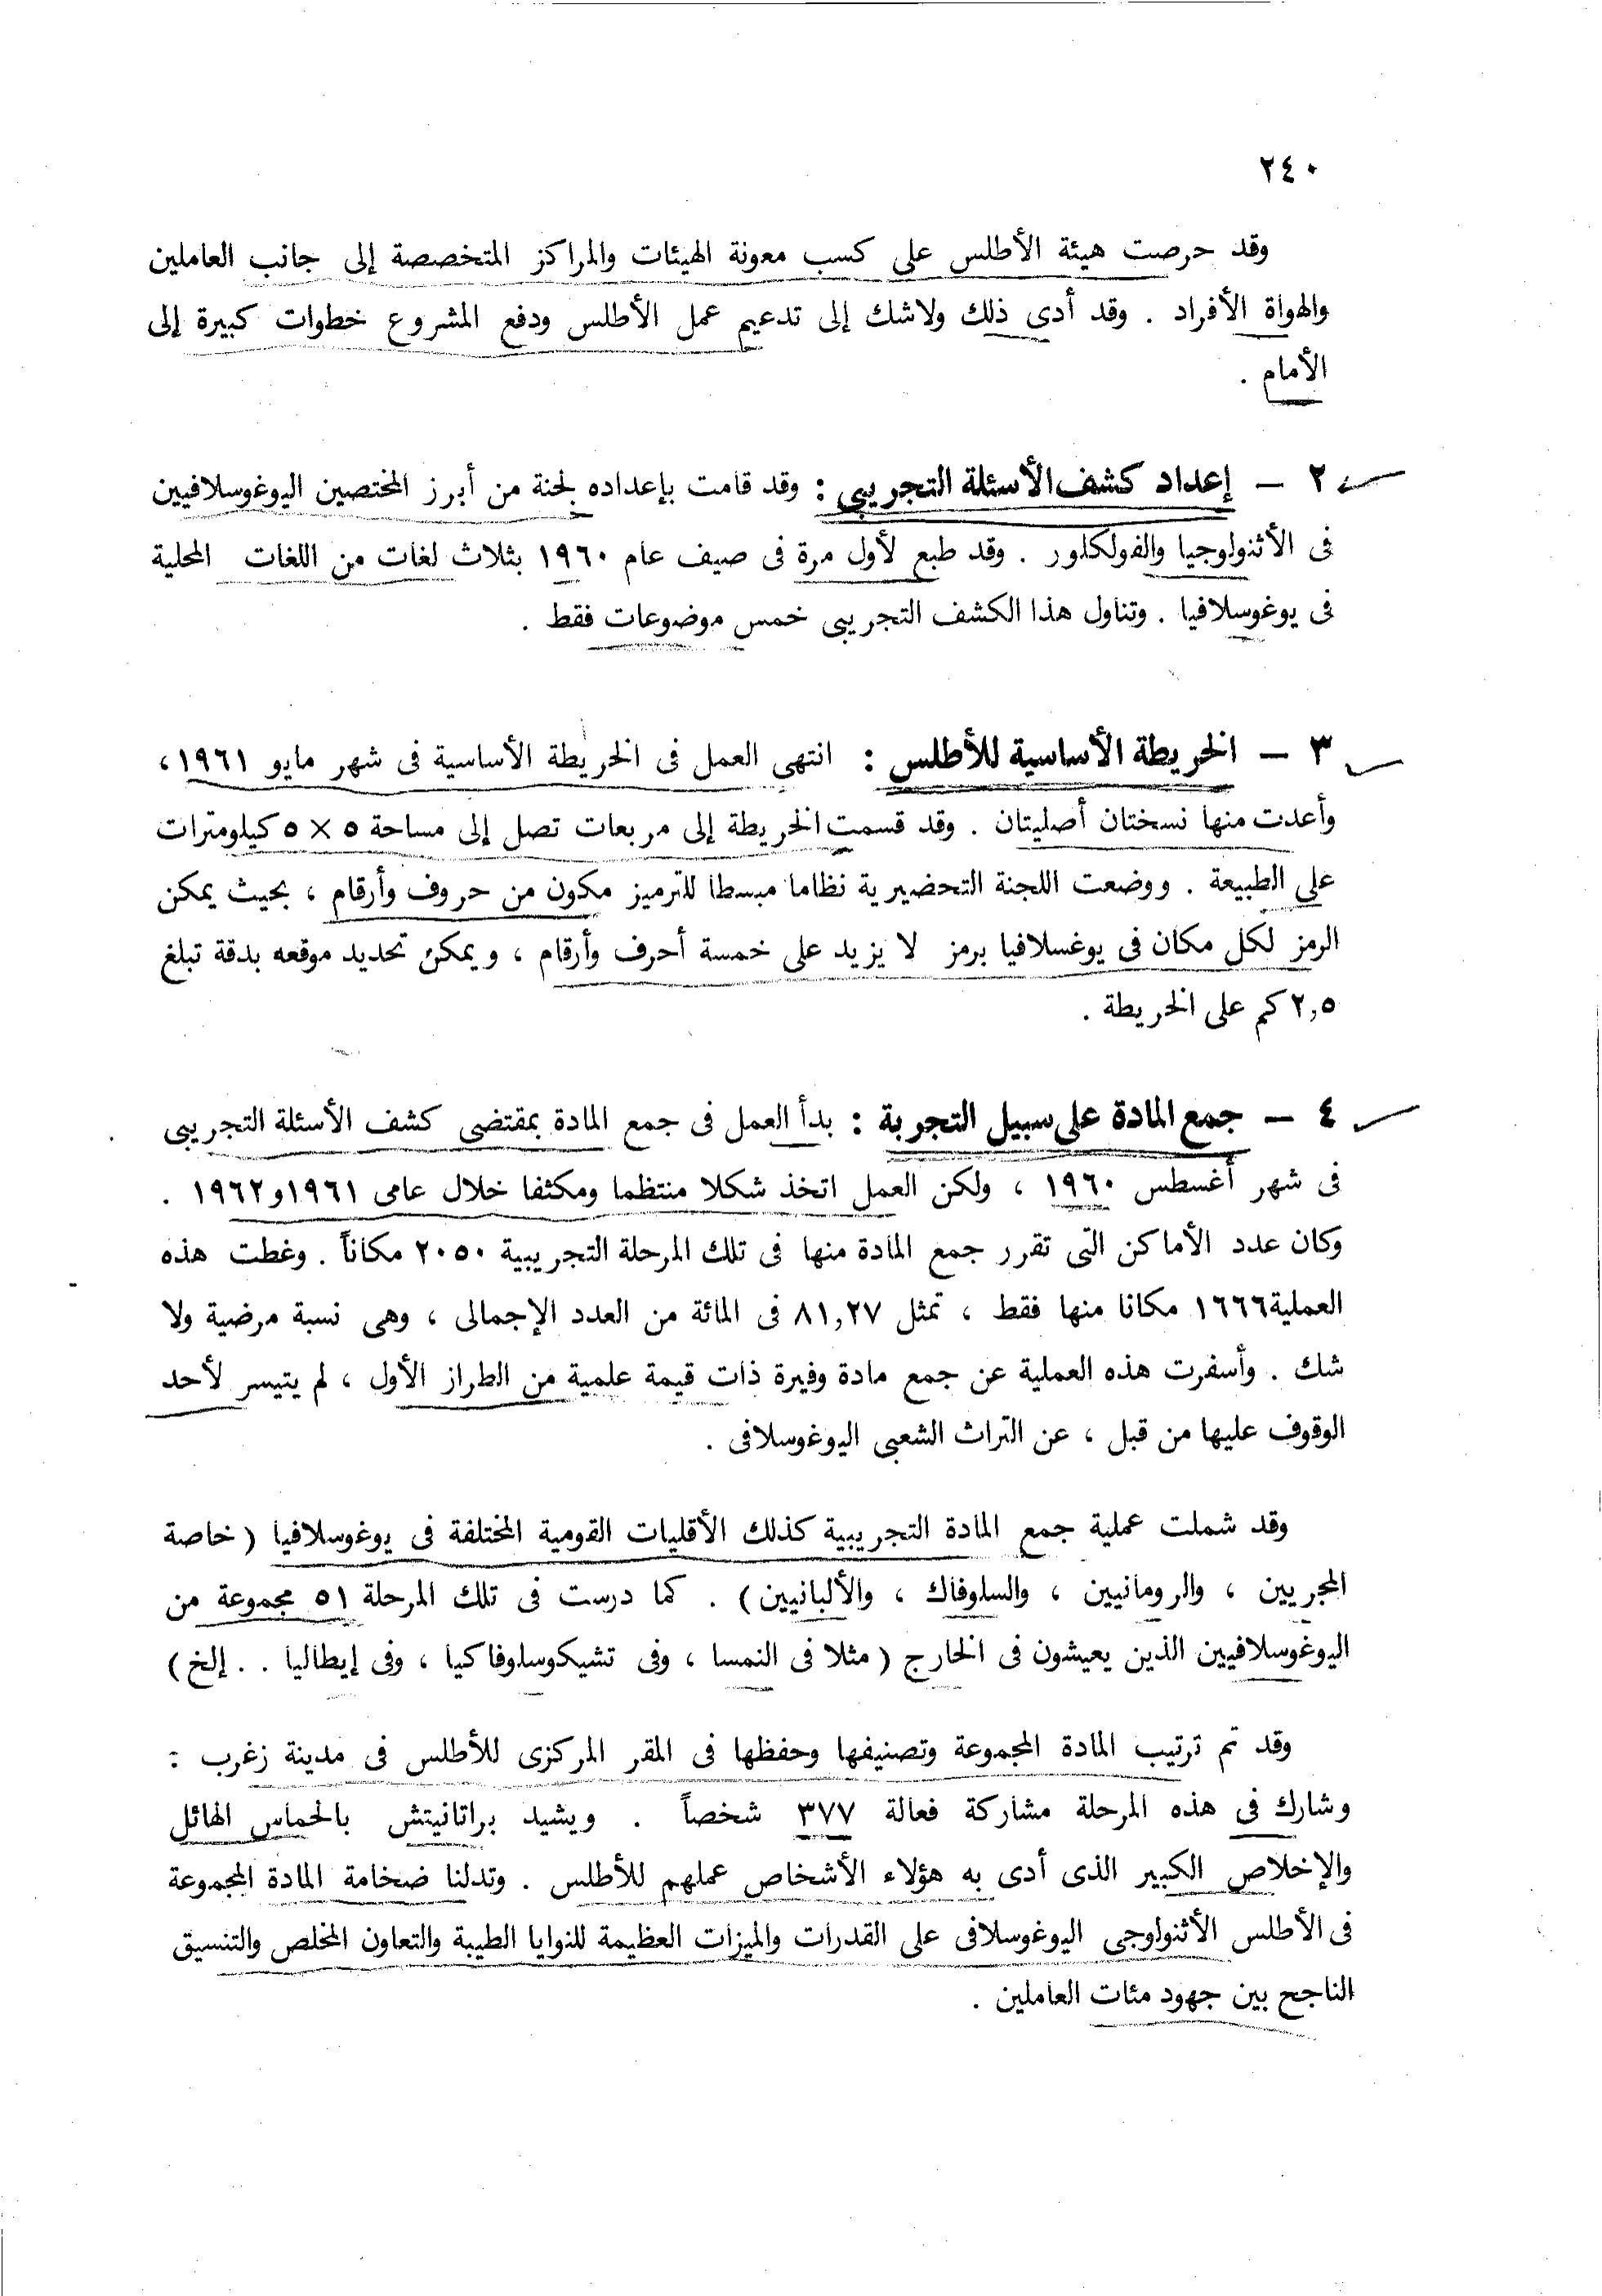 ٢٤٠
وقد حرصت هيئة الأطلس على كسب معونة الهيئات والمراكز المتخصصة إلى جانب العاملين
والهواة الأفراد . وقد أدى ذلك ولاشك إلى تدعيم عمل الأطلس ودفع المشروع خطوات كبيرة إلى
الأمام .
٢ – إعداد كشف الأسئلة التجريبى : وقد قامت بإعداده لجنة من أبرز المختصين اليوغوسلافيين
فى الأثنولوجيا والفولكلور . وقد طبع لأول مرة فى صيف عام ١٩٦٠ بثلاث لغات من اللغات المحلية
فى يوغوسلافيا . وتناول هذا الكشف التجريبى خمس موضوعات فقط .
٣ – الخريطة الأساسية للأطلس : انتهى العمل فى الخريطة الأساسية فى شهر مايو ١٩٦١ ،
وأعدت منها نسختان أصليتان . وقد قسمت الخريطة إلى مربعات تصل إلى مساحة ٥ × ٥ كيلومترات
على الطبيعة . ووضعت اللجنة التحضيرية نظاما مبسطا للترميز مكون من حروف وأرقام ، بحيث يمكن
الرمز لكل مكان فى يوغسلافيا برمز لا يزيد على خمسة أحرف وأرقام ، ويمكن تحديد موقعه بدقة تبلغ
٢,٥ كم على الخريطة .
٤ – جمع المادة على سبيل التجربة : بدأ العمل فى جمع المادة بمقتضى كشف الأسئلة التجريبى
فى شهر أغسطس ١٩٦٠ ، ولكن العمل اتخذ شكلا منتظما ومكثفا خلال عامى ١٩٦١ و١٩٦٢ .
وكان عدد الأماكن التى تقرر جمع المادة منها فى تلك المرحلة التجريبية ٢٠٥٠ مكاناً . وغطت هذه
العملية ١٦٦٦ مكانا منها فقط ، تمثل ٨١,٢٧ فى المائة من العدد الإجمالى ، وهى نسبة مرضية ولا
شك . وأسفرت هذه العملية عن جمع مادة وفيرة ذات قيمة علمية من الطراز الأول ، لم يتيسر لأحد
الوقوف عليها من قبل ، عن التراث الشعبى اليوغوسلافى .
وقد شملت عملية جمع المادة التجريبية كذلك الأقليات القومية المختلفة فى يوغوسلافيا ( خاصة
المجريين ، والرومانيين ، والسلوفاك ، والألبانيين ) . كما درست فى تلك المرحلة ٥١ مجموعة من
اليوغوسلافيين الذين يعيشون فى الخارج ( مثلا فى النمسا ، وفى تشيكوسلوفاكيا ، وفى إيطاليا . . إلخ )
وقد تم ترتيب المادة المجموعة وتصنيفها وحفظها فى المقر المركزى للأطلس فى مدينة زغرب :
وشارك فى هذه المرحلة مشاركة فعالة ٣٧٧ شخصاً . ويشيد براتانيتش بالحماس الهائل
والإخلاص الكبير الذى أدى به هؤلاء الأشخاص عملهم للأطلس . وتدلنا ضخامة المادة المجموعة
فى الأطلس الأثنولوجى اليوغوسلافى على القدرات والميزات العظيمة للنوايا الطيبة والتعاون المخلص والتنسيق
الناجح بين جهود مئات العاملين .